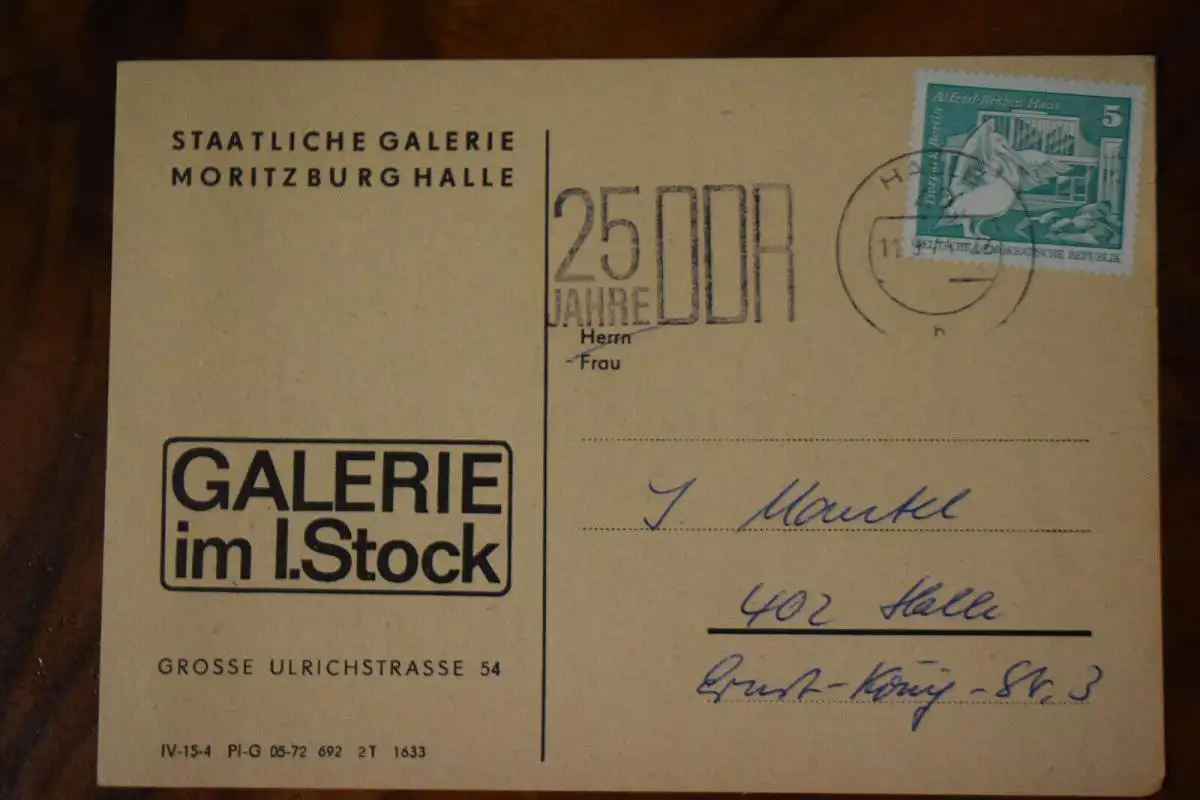 STAATLICHE GALERIE
MORITZBURG HALLE
GALERIE
im I.Stock
GROSSE ULRICHSTRASSE 54
IV-15-4 PI-G 05-72 692 2T 1633
Alfred-Brehm Haus
Tierpark Berlin
5
DEUTSCHE DEMOKRATISCHE REPUBLIK
HALLE
n
25
JAHRE DDR
Herrn
Frau
J. Mantel
402 Halle
Ernst-König-Str. 3